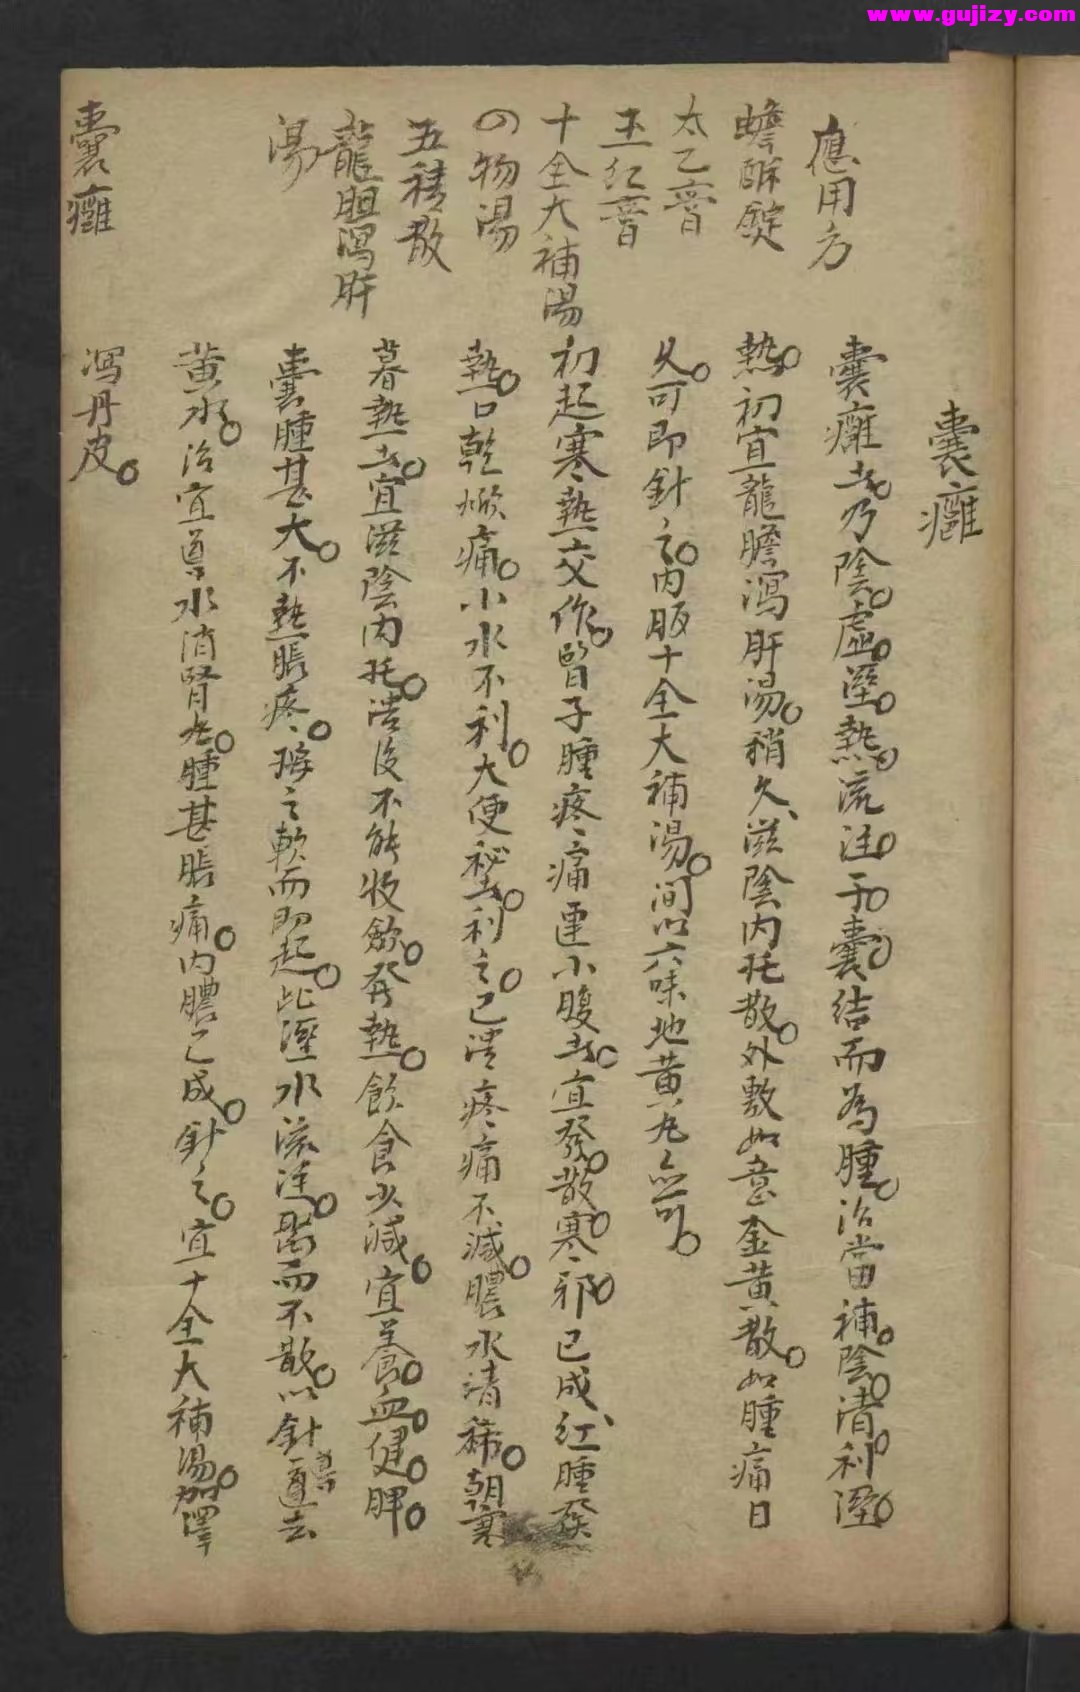 www.gujizy.com
囊癰
應用方
蟾酥錠
太乙膏
玉紅膏
十全大補湯
四物湯
五積散
龍胆瀉肝
湯
囊癰
囊癰者乃陰虛濕熱流注于囊結而為腫治當補陰清利濕
熱初宜龍膽瀉肝湯稍久滋陰內托散外敷如意金黃散如腫痛日
久可即針之內服十全大補湯間以六味地黃丸亦可
初起寒熱交作腎子腫疼痛連小腹者宜發散寒邪已成紅腫發
熱口乾焮痛小水不利大便秘者利之已潰疼痛不減膿水清稀朝寒
暮熱者宜滋陰內托潰後不能收歛發熱飲食少減宜養血健脾
囊腫甚大不熱脹疼按之軟而即起此濕水流注聚而不散以針導去
黃水治宜導水消腎丸腫甚脹痛內膿已成針之宜十全大補湯加澤
瀉丹皮